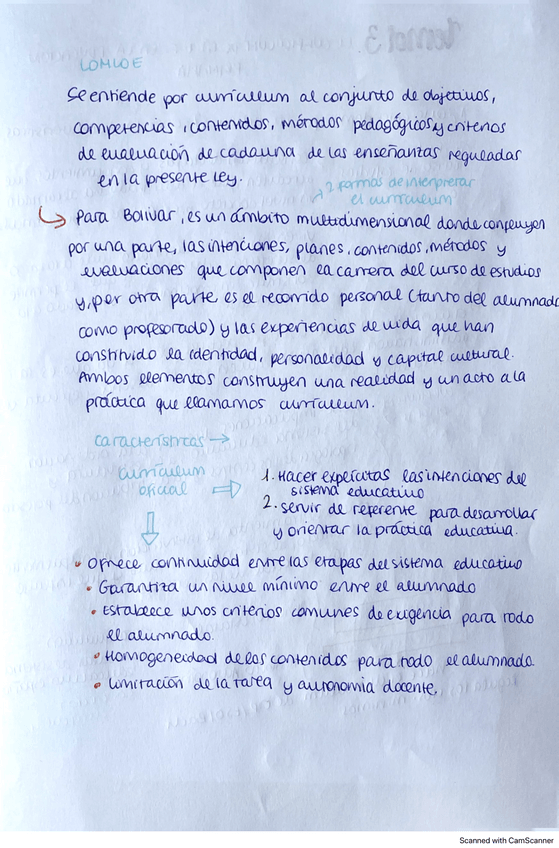 LOMLOE
Se entiende por currículum al conjunto de objetivos,
competencias, contenidos, métodos pedagógicos y criterios
de evaluación de cada una de las enseñanzas reguladas
en la presente ley.
2 formas de interpretar
el currículum
Para Bolívar, es un ámbito multidimensional donde confluyen
por una parte, las intenciones, planes, contenidos, métodos y
evaluaciones que componen la carrera del curso de estudios
y, por otra parte es el recorrido personal (tanto del alumnado
como profesorado) y las experiencias de vida que han
constituido la identidad, personalidad y capital cultural.
Ambos elementos construyen una realidad y un acto a la
práctica que llamamos currículum.
características →
currículum
oficial ⇒
1. Hacer explícitas las intenciones del
sistema educativo
2. servir de referente para desarrollar
y orientar la práctica educativa.
• Ofrece continuidad entre las etapas del sistema educativo
• Garantiza un nivel mínimo entre el alumnado
• Establece unos criterios comunes de exigencia para todo
el alumnado.
• Homogeneidad de los contenidos para todo el alumnado
• Limitación de la tarea y autonomía docente.
Scanned with CamScanner